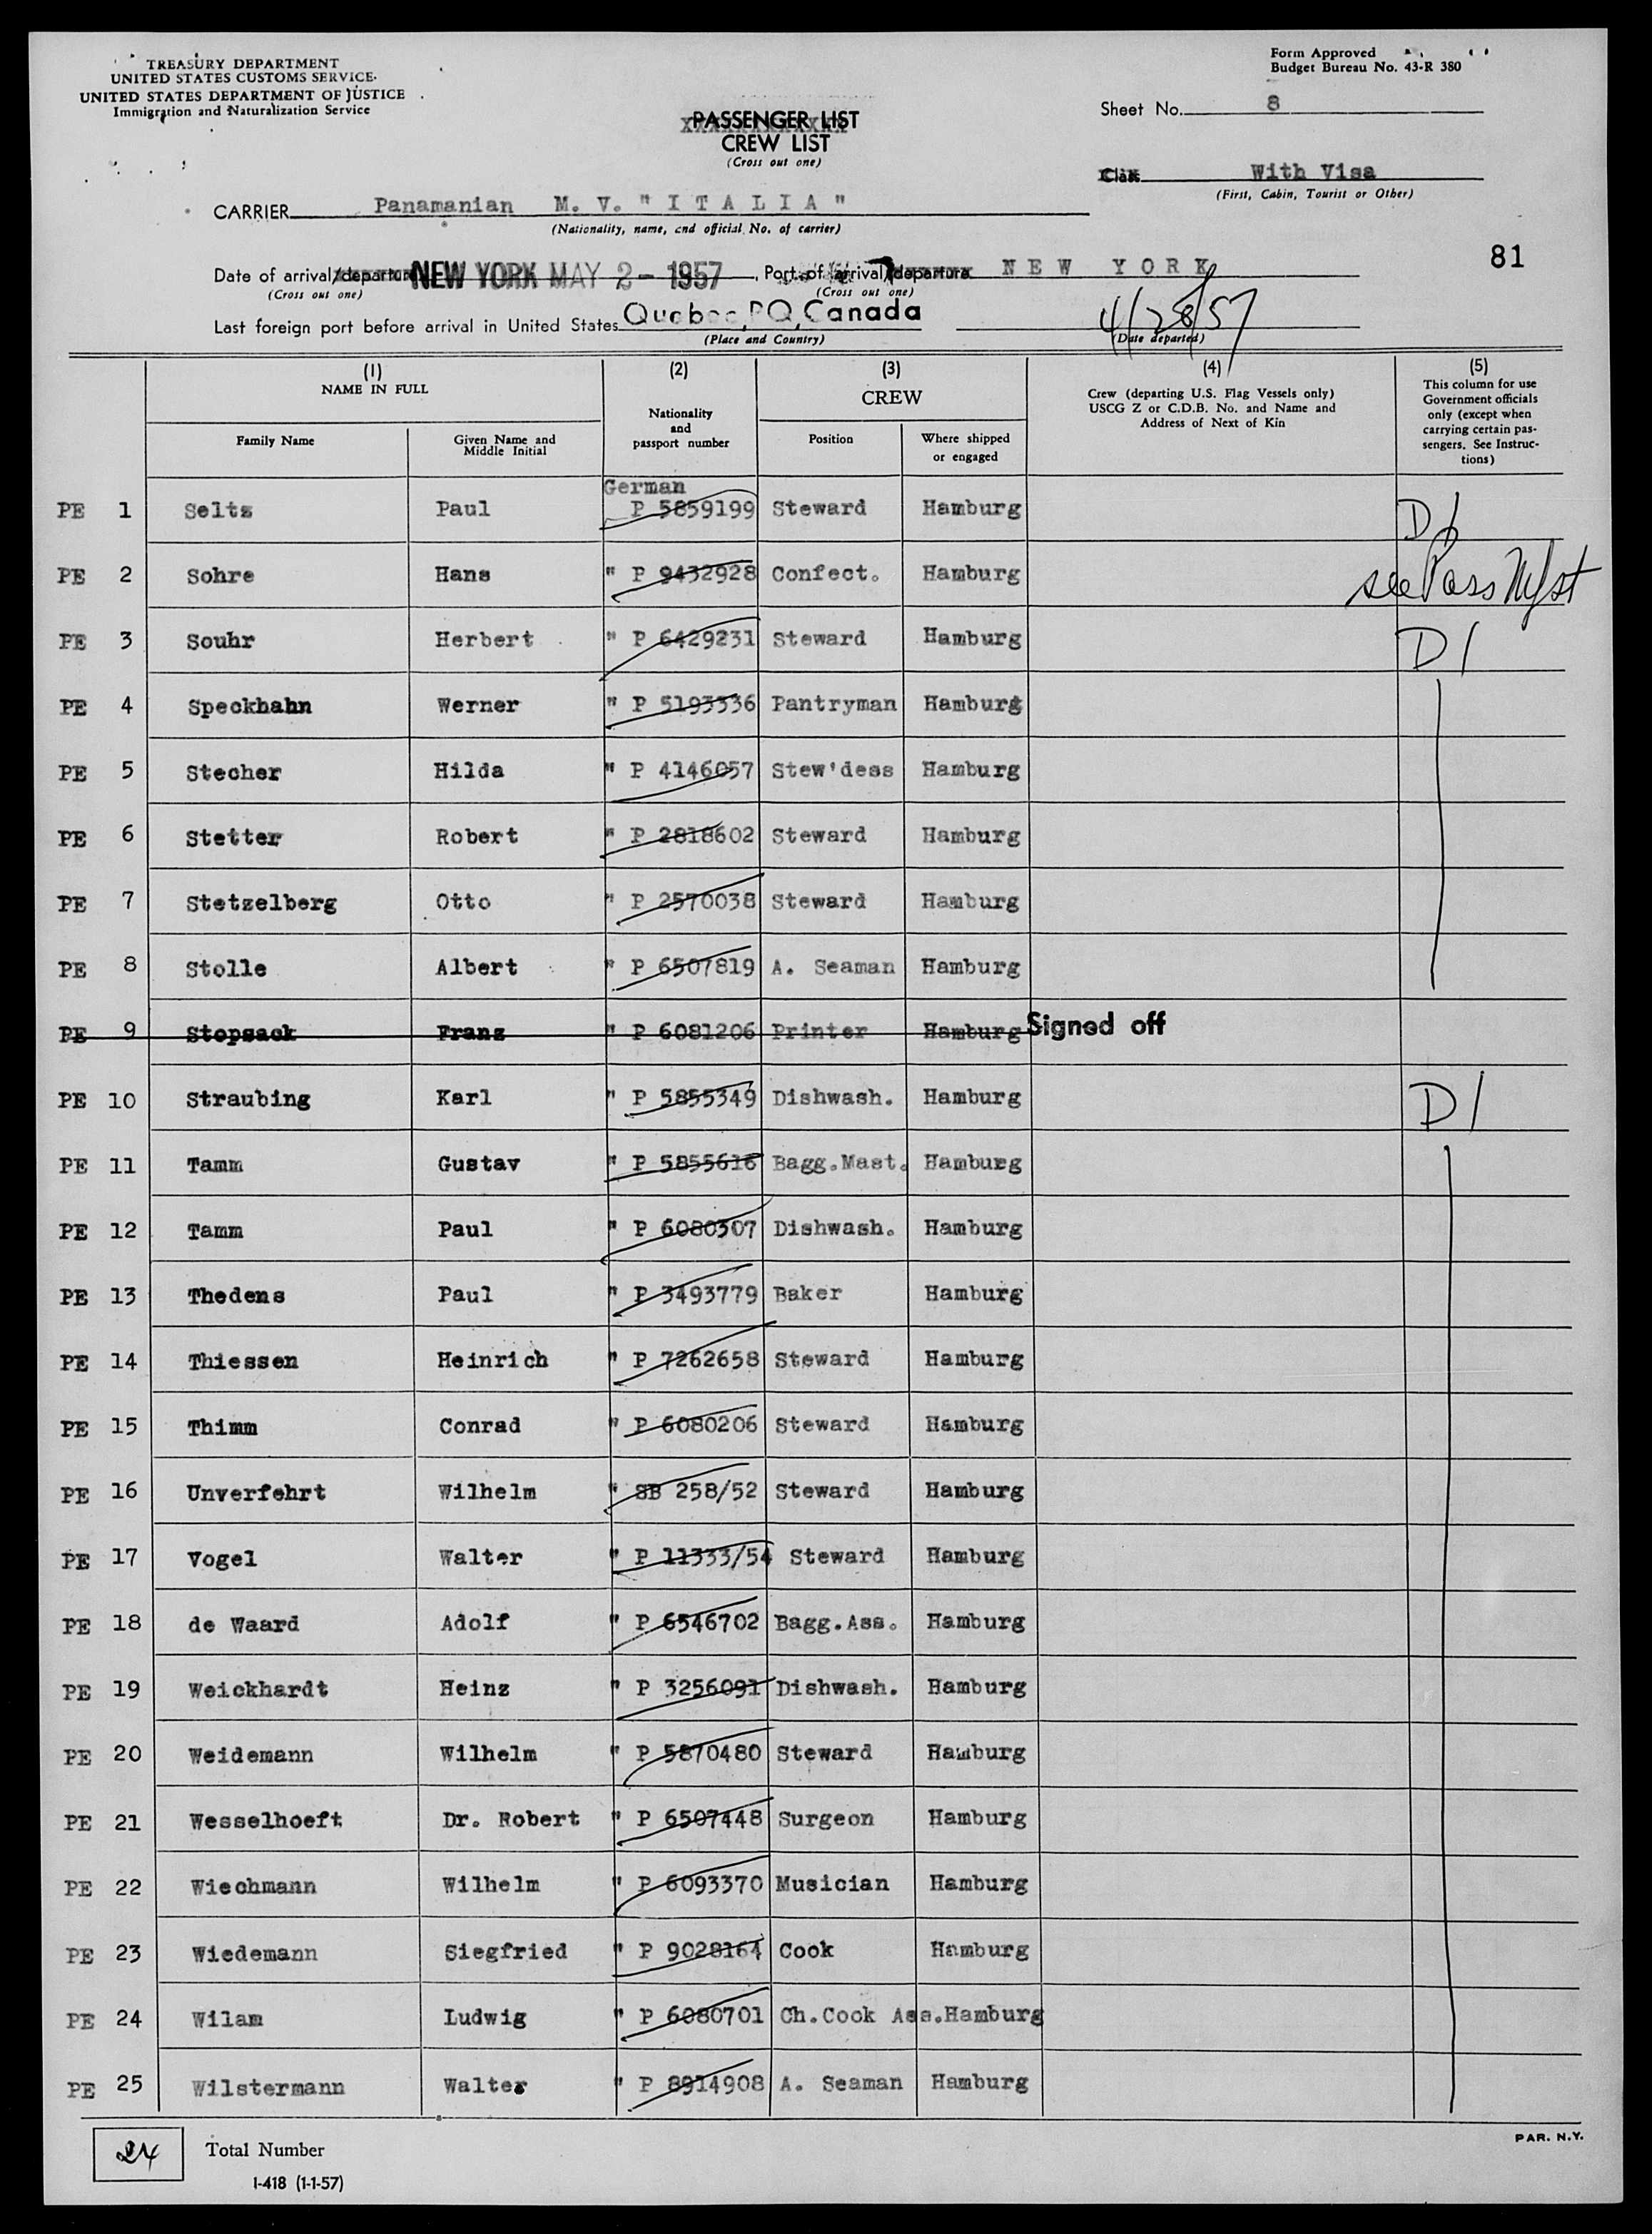 TREASURY DEPARTMENT
UNITED STATES CUSTOMS SERVICE
UNITED STATES DEPARTMENT OF JUSTICE
Immigration and Naturalization Service
Form Approved
Budget Bureau No. 43-R 380
Sheet No. 8
PASSENGER LIST
CREW LIST
(Cross out one)
Class With Visa
(First, Cabin, Tourist or Other)
CARRIER Panamanian M. V. "ITALIA"
(Nationality, name, and official No. of carrier)
81
Date of arrival/departure NEW YORK MAY 2 - 1957, Port of arrival/departure NEW YORK
(Cross out one) (Cross out one)
Last foreign port before arrival in United States Quebec, PQ, Canada 4/28/57
(Place and Country) (Date departed)
(1) (2) (3) (4) (5)
NAME IN FULL Nationality and passport number CREW Crew (departing U.S. Flag Vessels only) USCG Z or C.D.B. No. and Name and Address of Next of Kin This column for use Government officials only (except when carrying certain passengers. See Instructions)
Family Name Given Name and Middle Initial Position Where shipped or engaged
German
PE 1 Seltz Paul P 5859199 Steward Hamburg D/
PE 2 Sohre Hans " P 9432928 Confect. Hamburg see Pass
PE 3 Souhr Herbert " P 6429231 Steward Hamburg D/
PE 4 Speckhahn Werner " P 5193336 Pantryman Hamburg
PE 5 Stecher Hilda " P 4146057 Stew'dess Hamburg
PE 6 Stetter Robert " P 2818602 Steward Hamburg
PE 7 Stetzelberg Otto " P 2570038 Steward Hamburg
PE 8 Stolle Albert " P 6507819 A. Seaman Hamburg
PE 9 Stopsack Franz " P 6081206 Printer Hamburg Signed off
PE 10 Straubing Karl " P 5855349 Dishwash. Hamburg D/
PE 11 Tamm Gustav " P 5855616 Bagg.Mast. Hamburg
PE 12 Tamm Paul " P 6080307 Dishwash. Hamburg
PE 13 Thedens Paul " P 3493779 Baker Hamburg
PE 14 Thiessen Heinrich " P 7262658 Steward Hamburg
PE 15 Thimm Conrad " P 6080206 Steward Hamburg
PE 16 Unverfehrt Wilhelm " SB 258/52 Steward Hamburg
PE 17 Vogel Walter " P 11333/54 Steward Hamburg
PE 18 de Waard Adolf " P 6546702 Bagg.Ass. Hamburg
PE 19 Weickhardt Heinz " P 3256091 Dishwash. Hamburg
PE 20 Weidemann Wilhelm " P 5870480 Steward Hamburg
PE 21 Wesselhoeft Dr. Robert " P 6507448 Surgeon Hamburg
PE 22 Wiechmann Wilhelm " P 6093370 Musician Hamburg
PE 23 Wiedemann Siegfried " P 9028164 Cook Hamburg
PE 24 Wilam Ludwig " P 6080701 Ch.Cook Ass.Hamburg
PE 25 Wilstermann Walter " P 8914908 A. Seaman Hamburg
24 Total Number
I-418 (1-1-57)
PAR. N.Y.